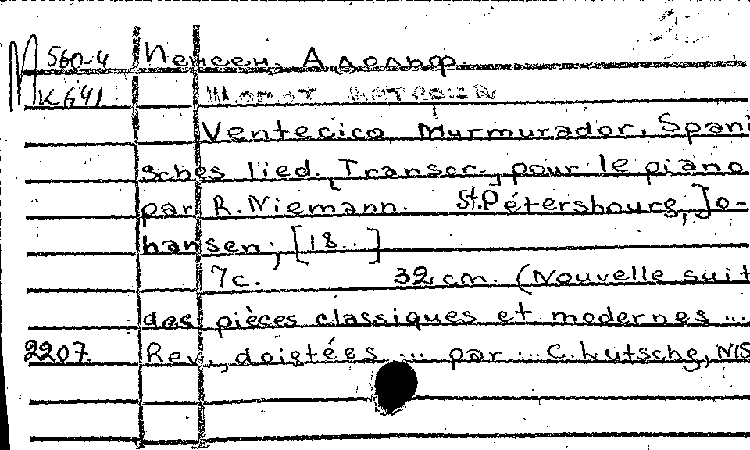 М 560-4 Йенсен, Адольф.
К641
Ventecico Murmurador. Spani
sches lied. [Transcr.] pour le piano
par R. Niemann. St.Pétersbourg, Jo-
hansen, [18...]
7с. 32 cm. (Nouvelle suit
des pièces classiques et modernes ...
2207. Rev., doigtées ... par ... C. Lutsche, N15